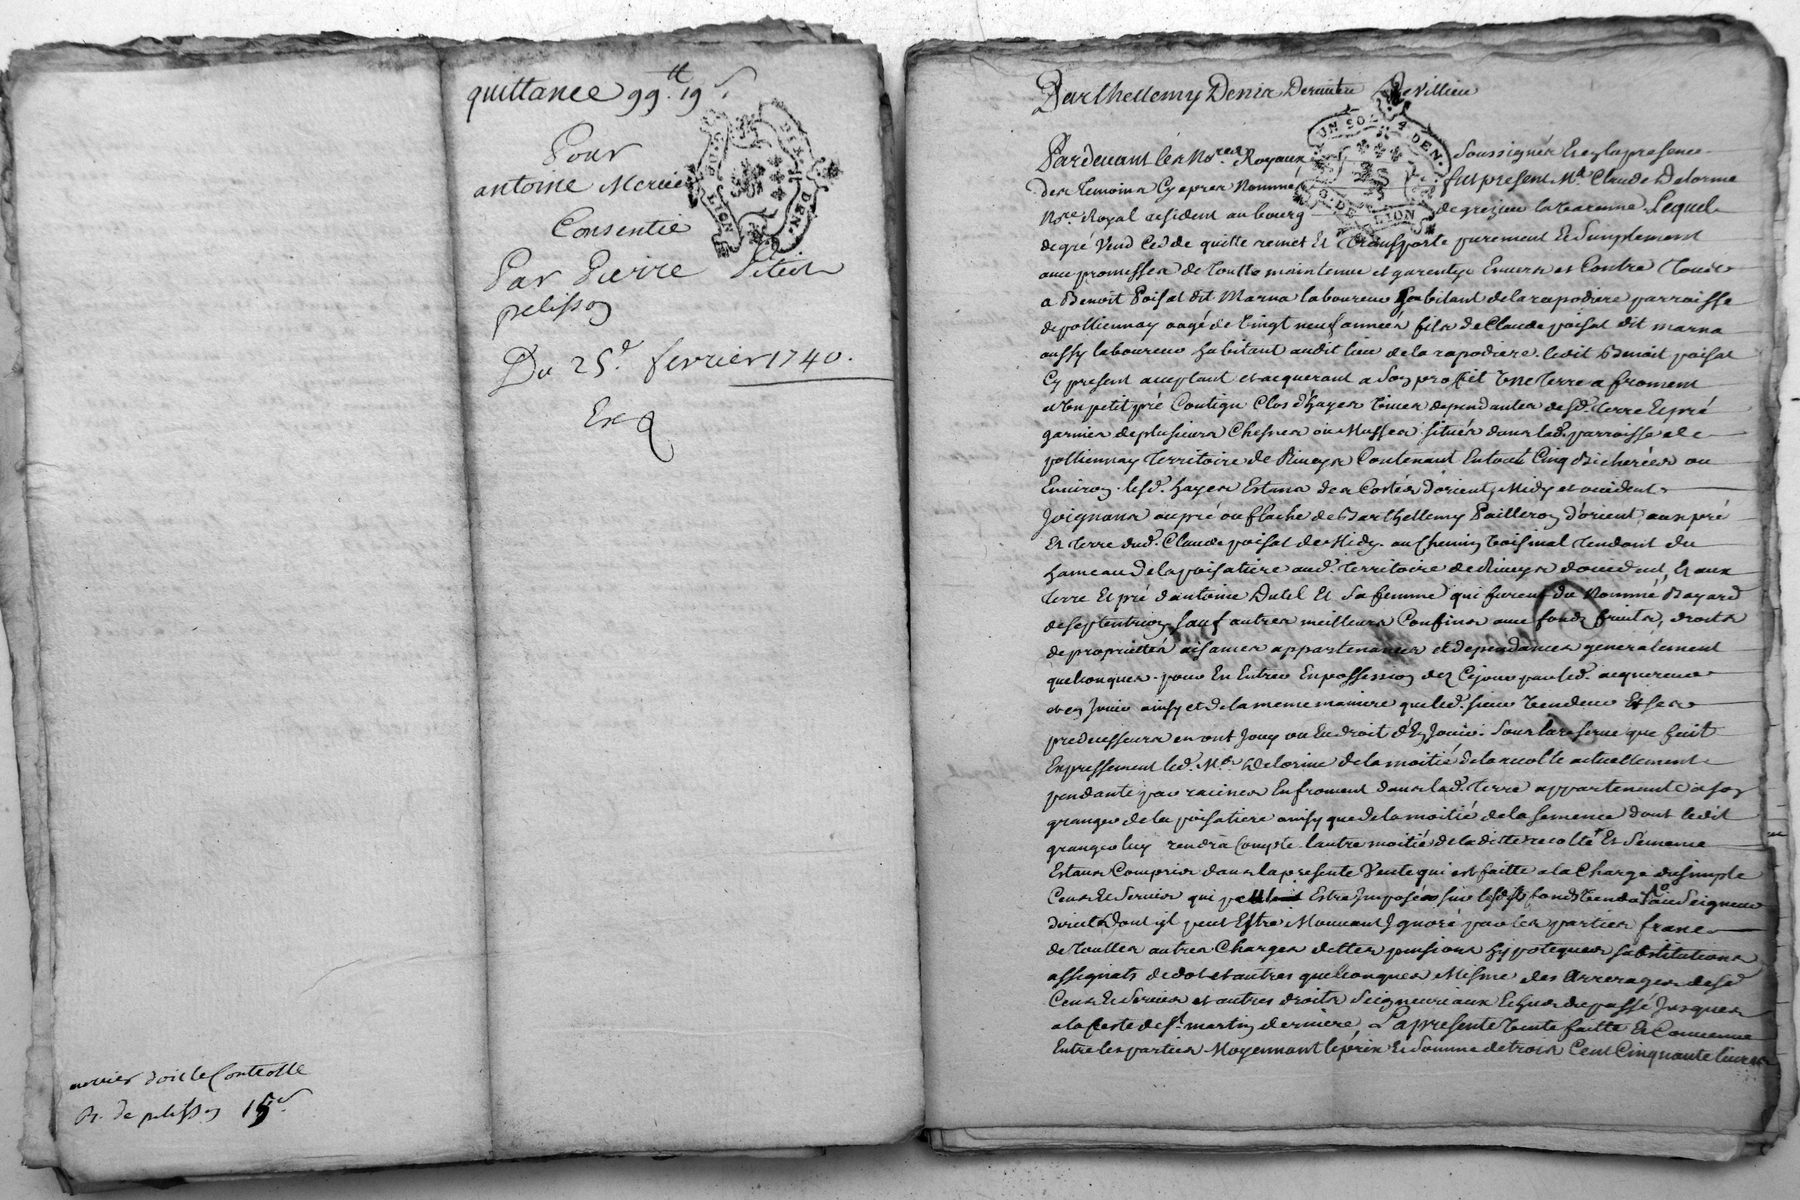 quittance 99.tt 19 s.
Pour
antoine Mercier
Consentie
Par Pierre
pelisson
Du 25.e fevrier 1740.
Exa
mercier doit le Controlle
de pelisson 15 s.
G. DE LION DIX. DEN.
Barthellemy Denis Derniere
UN SOL 4 DEN.
G. DE LION
Pardevant les No.res Royaux Soussignés Et En la presence
des temoins Cy apres Nommés fut present M.e Claude Delorme
No.re Royal resident au bourg de grezieu la varenne. Lequel
de gré Vend Cedde quitte remet Et transporte purement Et Simplement
avec promesses de toutte maintenue et garentye Envers et Contre tous
a Benoit Poisat dit Marna laboureur habitant de la rapodiere parroisse
de pollionnay aagé de vingt neuf années fils de Claude poisat dit marna
aussy laboureur habitant audit lieu de la rapodiere. ledit Benoit poisat
Cy present acceptant et acquerant a Son proffit Une terre a froment
et Un petit pré Contigu Clos d'hayes vives dependantes desd. terre Et pré
garnies de plusieurs Chesnes situés dans lad. parroisse de
pollionnay territoire de Contenant En tout Cinq Bicherées ou
Environ. lesd. hayes Estans des Costés d'orient, Midy et occident
Joignans au pré ou flache de Barthellemy Pailleron d'orient, aux pré
Et terre dud. Claude poisat de Midy. au Chemin voisinal tendant du
hameau de la poisatiere aud. territoire de d'occident, Et aux
terre Et pré d'antoine Dutel Et Sa femme qui furent du Nommé Bayard
de septentrion, Sauf autres meilleurs Confins avec fonds fruits, droits
de proprietés aisances appartenances et dependances generalement
quelconques. pour En Entrer En possession dez Cejour par led. acquereur
et en Jouir ainsy et de la meme maniere que led. Sieur Vendeur Et Ses
predecesseurs en ont Jouy ou Eu droit d'En Jouir. Sous la reserve que fait
Expressement led. M.e Delorme de la moitié de la recolte actuellement
pendante par racines En froment dans lad. terre appartenante a son
granger de la poisatiere ainsy que de la moitié de la Semence dont ledit
granger luy rendra Compte l'autre moitié de la ditte recolte Et Semence
Estans Comprise dans la presente Vente qui est faitte a la Charge du Simple
Cens Et Servis qui Estre Imposés sur lesd. fonds Vendus Seigneur
direct dont il peut Estre Mouvant Ignoré par les parties franc
de touttes autres Charges dettes pensions hypoteques substitutions
assignats de dot et autres quelconques Mesme des Arrerages desd.
Cens Et Servis et autres droits Seigneuriaux Echus du passé Jusques
a la feste de St. martin derniere, La presente Vente faitte Et Convenue
Entre les parties Moyennant le prix Et Somme de trois Cent Cinquante livres